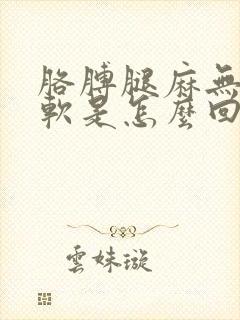 胳膊腿麻無
軟是怎麼回
雲妹璇